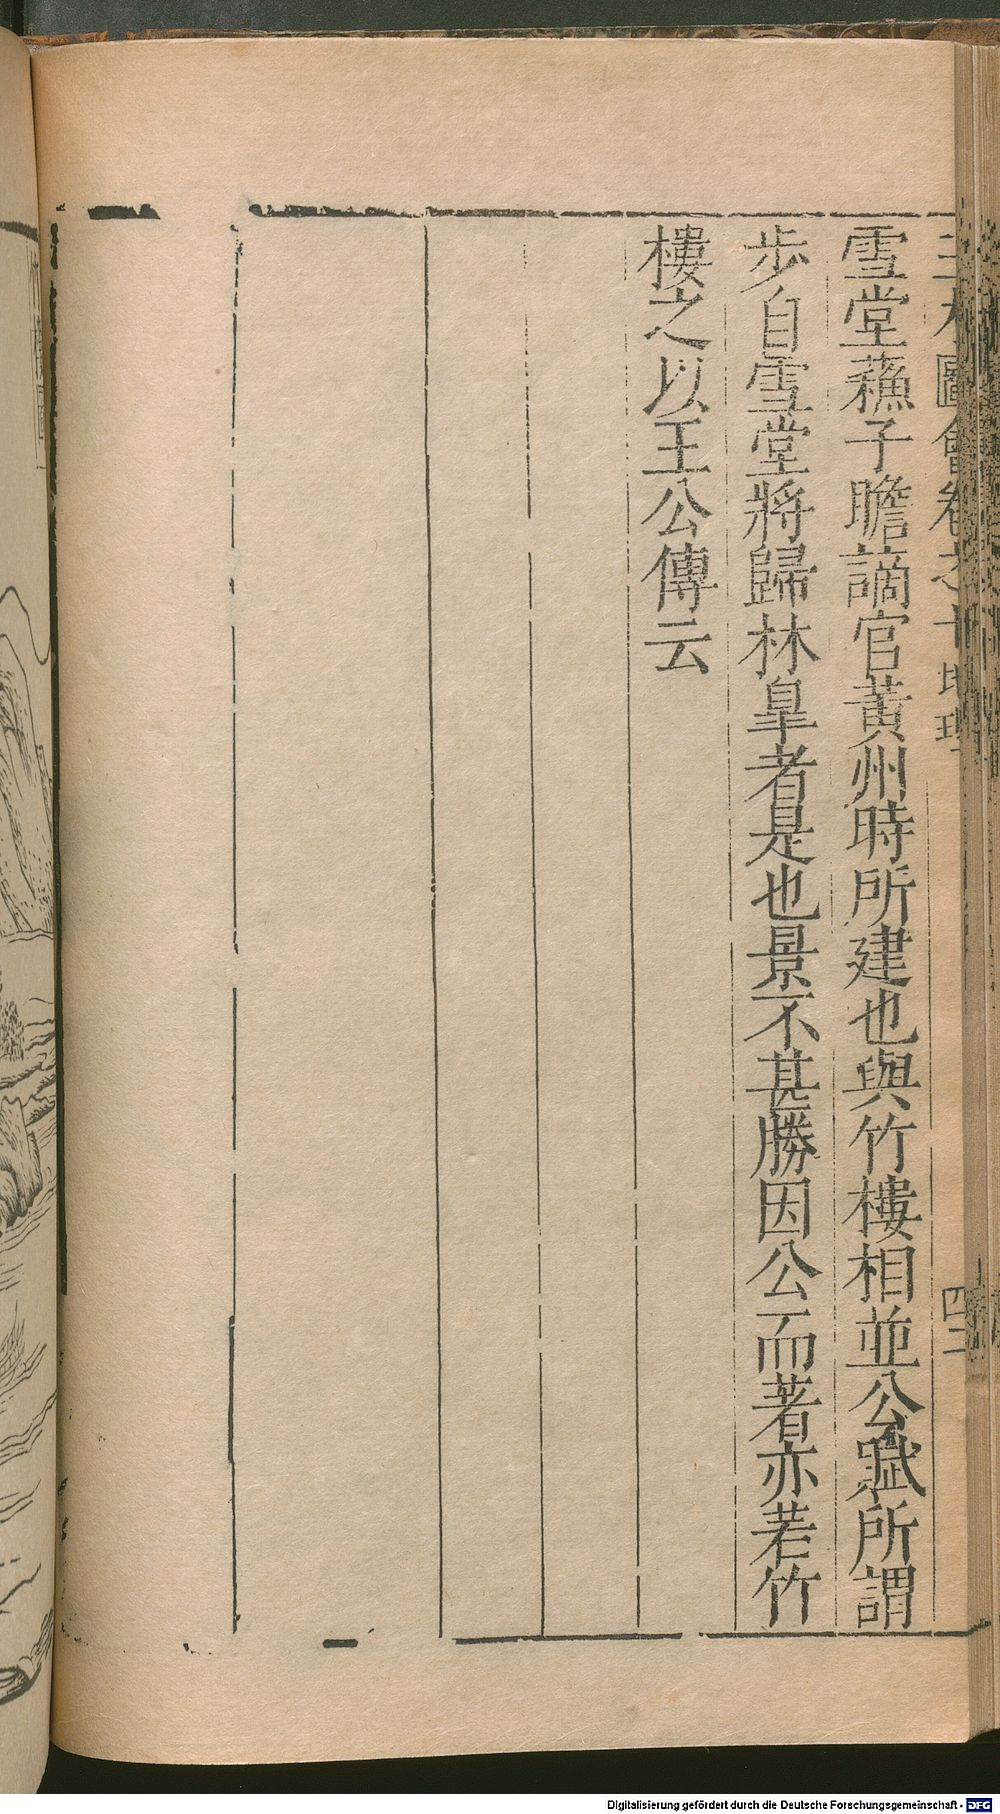 雪堂蘓子瞻謫官黃州時所建也與竹樓相並公賦所謂
歩自雪堂將歸林皐者是也景不甚勝因公而著亦若竹
樓之以王公傳云
四二
Digitalisierung gefördert durch die Deutsche Forschungsgemeinschaft - DFG